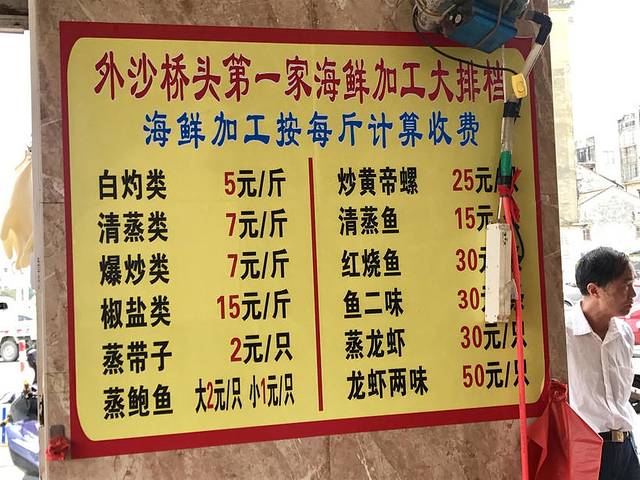 外沙桥头第一家海鲜加工大排档
海鲜加工按每斤计算收费
白灼类 5元/斤
清蒸类 7元/斤
爆炒类 7元/斤
椒盐类 15元/斤
蒸带子 2元/只
蒸鲍鱼 大2元/只 小1元/只
炒黄帝螺 25元/
清蒸鱼 15元
红烧鱼 30元
鱼二味 30
蒸龙虾 30元/只
龙虾两味 50元/只